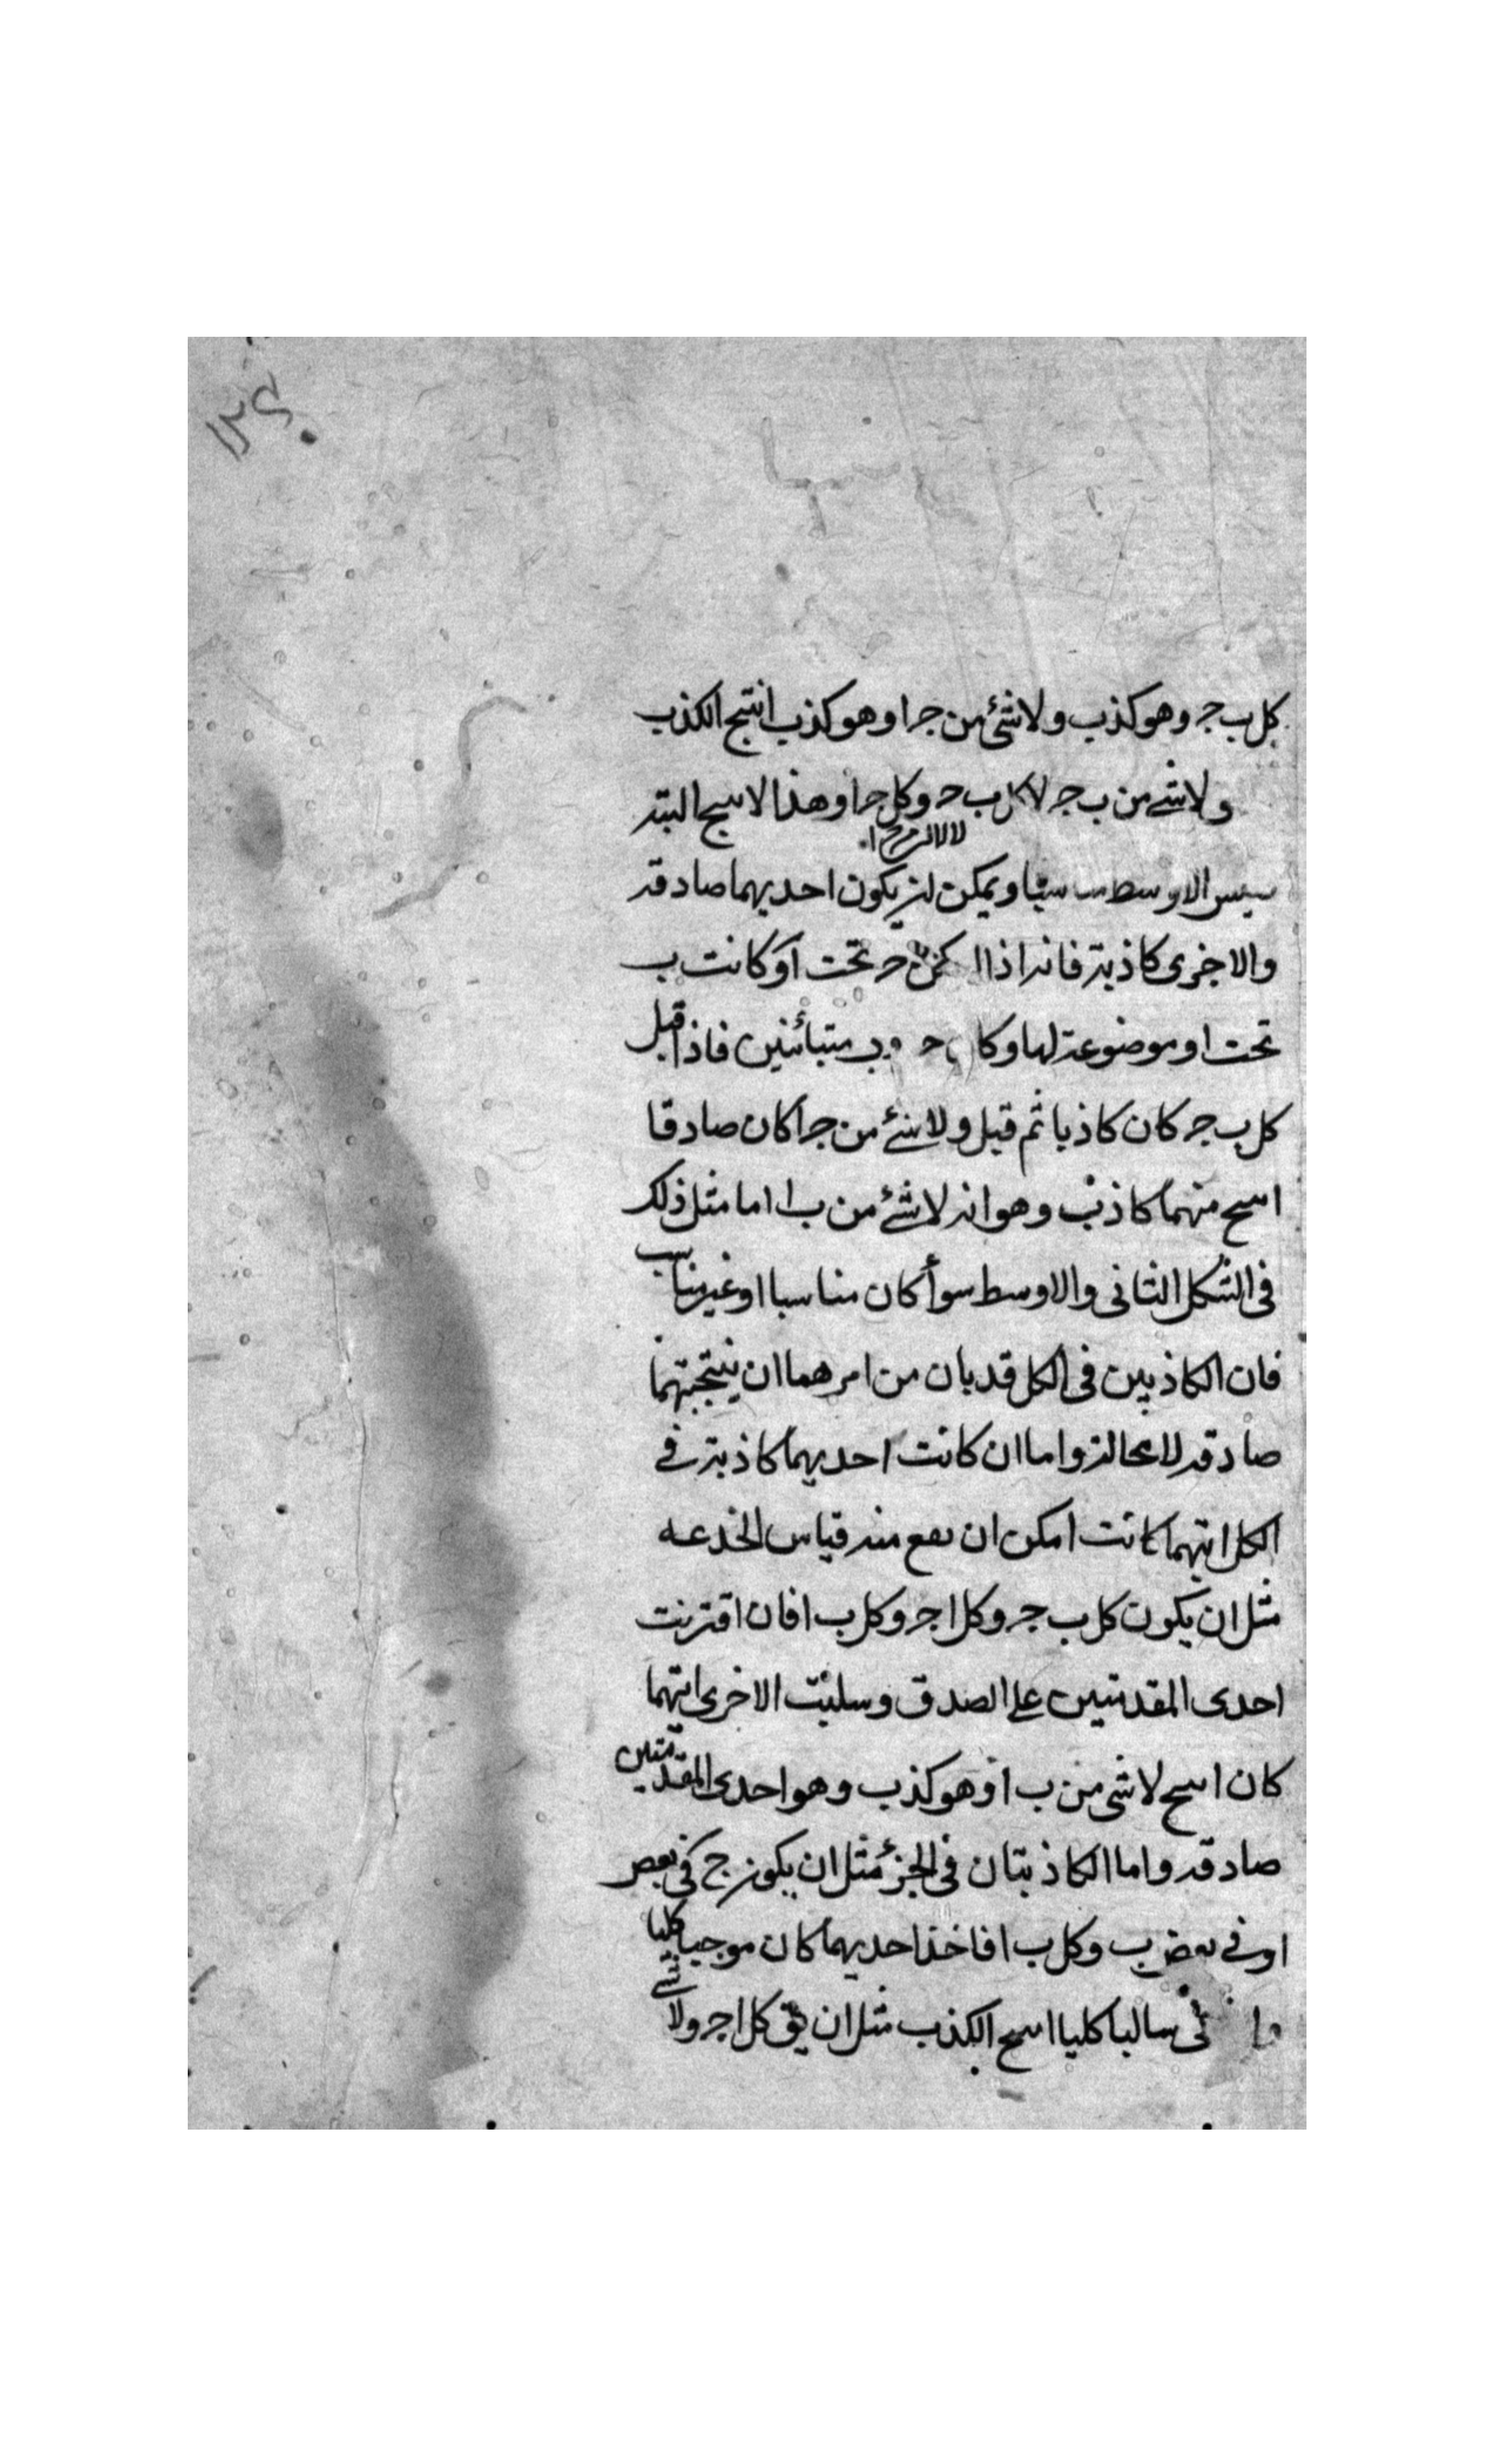 ١٢٤
كل ب جـ وهو كذب ولا شئ من جـ ا وهو كذب انتج الكذب
ولا شئ من ب جـ لا كل ب حـ وكل جـ ا وهذا لا سح البته
الاوسط ويمكن ان يكون احديهما صادقه
والاخرى كاذبة فانه اذا حـ تحت ا وكانت ب
تحت ا وموضوعة لها حـ و ب متبائنين فاذا قيل
كل ب جـ كان كاذبا ثم قيل ولا شئ من جـ ا كان صادقا
اسح منهما كاذب وهو انه لا شئ من ب ا اما مثل ذلك
فى الشكل الثانى والاوسط سوأ كان مناسبا او غير مناسب
فان الكاذبين فى الكل قد بان من امرهما ان نتيجتهما
صادقه لا محالة واما ان كانت احديهما كاذبة فى
الكل ايتهما كانت امكن ان يقع منه قياس الخدعه
مثل ان يكون كل ب جـ وكل ا جـ وكل ب ا فان اقترنت
احدى المقدمتين على الصدق وسلبت الاخرى ايتهما
كان اسح لا شى من ب ا وهو كذب وهو احدى المقدمتين
صادقه واما الكاذبتان فى الجزء مثل ان يكون ج فى بعض
ا وفى بعض ب وكل ب ا فاخذ احديهما كان موجبا كليا
سالبا كليا اسح الكذب مثل ان يق كل ا جـ ولا شى